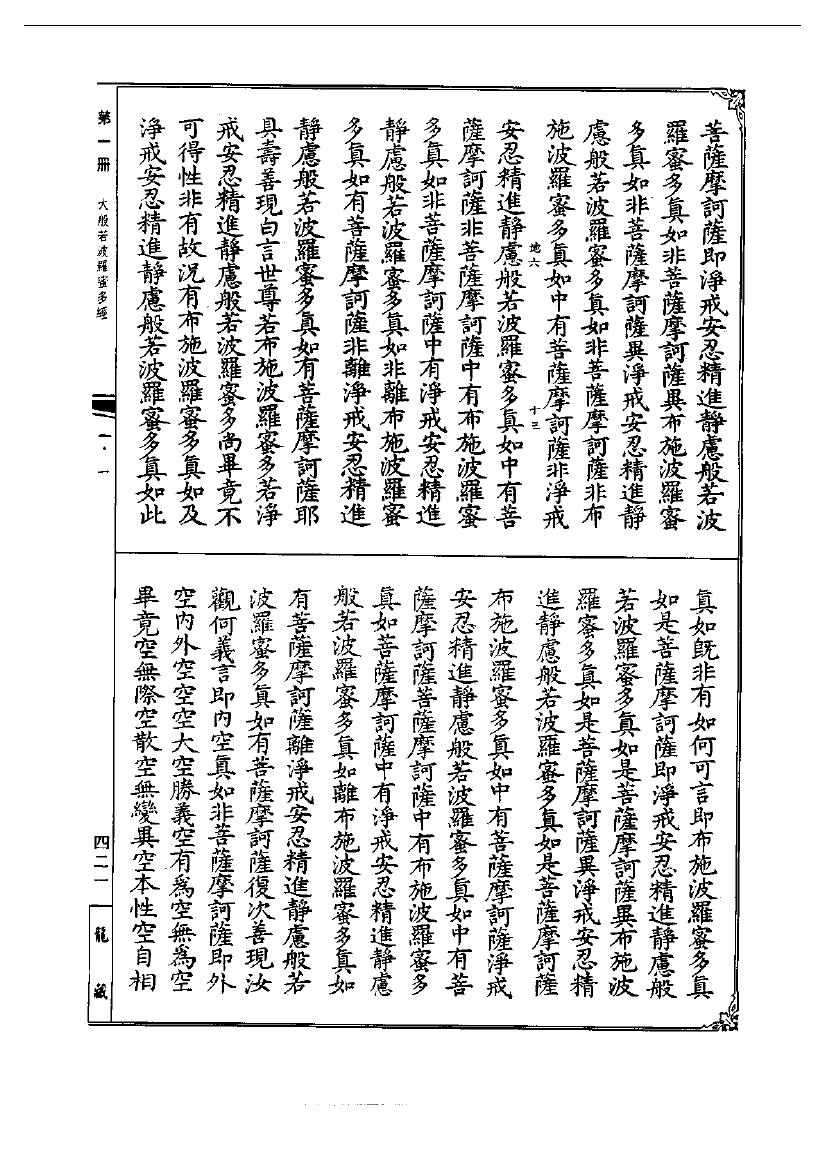 菩薩摩訶薩即淨戒安忍精進靜慮般若波
羅蜜多真如非菩薩摩訶薩異布施波羅蜜
多真如非菩薩摩訶薩異淨戒安忍精進靜
慮般若波羅蜜多真如非菩薩摩訶薩非布
施波羅蜜多真如中有菩薩摩訶薩非淨戒
地六
十三
安忍精進靜慮般若波羅蜜多真如中有菩
薩摩訶薩非菩薩摩訶薩中有布施波羅蜜
多真如非菩薩摩訶薩中有淨戒安忍精進
靜慮般若波羅蜜多真如非離布施波羅蜜
多真如有菩薩摩訶薩非離淨戒安忍精進
靜慮般若波羅蜜多真如有菩薩摩訶薩耶
具壽善現白言世尊若布施波羅蜜多若淨
戒安忍精進靜慮般若波羅蜜多尚畢竟不
可得性非有故況有布施波羅蜜多真如及
淨戒安忍精進靜慮般若波羅蜜多真如此
真如旣非有如何可言即布施波羅蜜多真
如是菩薩摩訶薩即淨戒安忍精進靜慮般
若波羅蜜多真如是菩薩摩訶薩異布施波
羅蜜多真如是菩薩摩訶薩異淨戒安忍精
進靜慮般若波羅蜜多真如是菩薩摩訶薩
布施波羅蜜多真如中有菩薩摩訶薩淨戒
安忍精進靜慮般若波羅蜜多真如中有菩
薩摩訶薩菩薩摩訶薩中有布施波羅蜜多
真如菩薩摩訶薩中有淨戒安忍精進靜慮
般若波羅蜜多真如離布施波羅蜜多真如
有菩薩摩訶薩離淨戒安忍精進靜慮般若
波羅蜜多真如有菩薩摩訶薩復次善現汝
觀何義言即內空真如非菩薩摩訶薩即外
空內外空空空大空勝義空有為空無為空
畢竟空無際空散空無變異空本性空自相
第一冊 大般若波羅蜜多經
一·一
四二一
龍藏